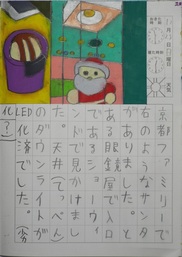 京都ファミリーで
右のようなサンタ
がありました。と
ある眼鏡屋で入口
であるショーウィ
ンドで見かけまし
た。天井(てっぺん)
のダウンライトが
LED化済でした。(劣
化?)